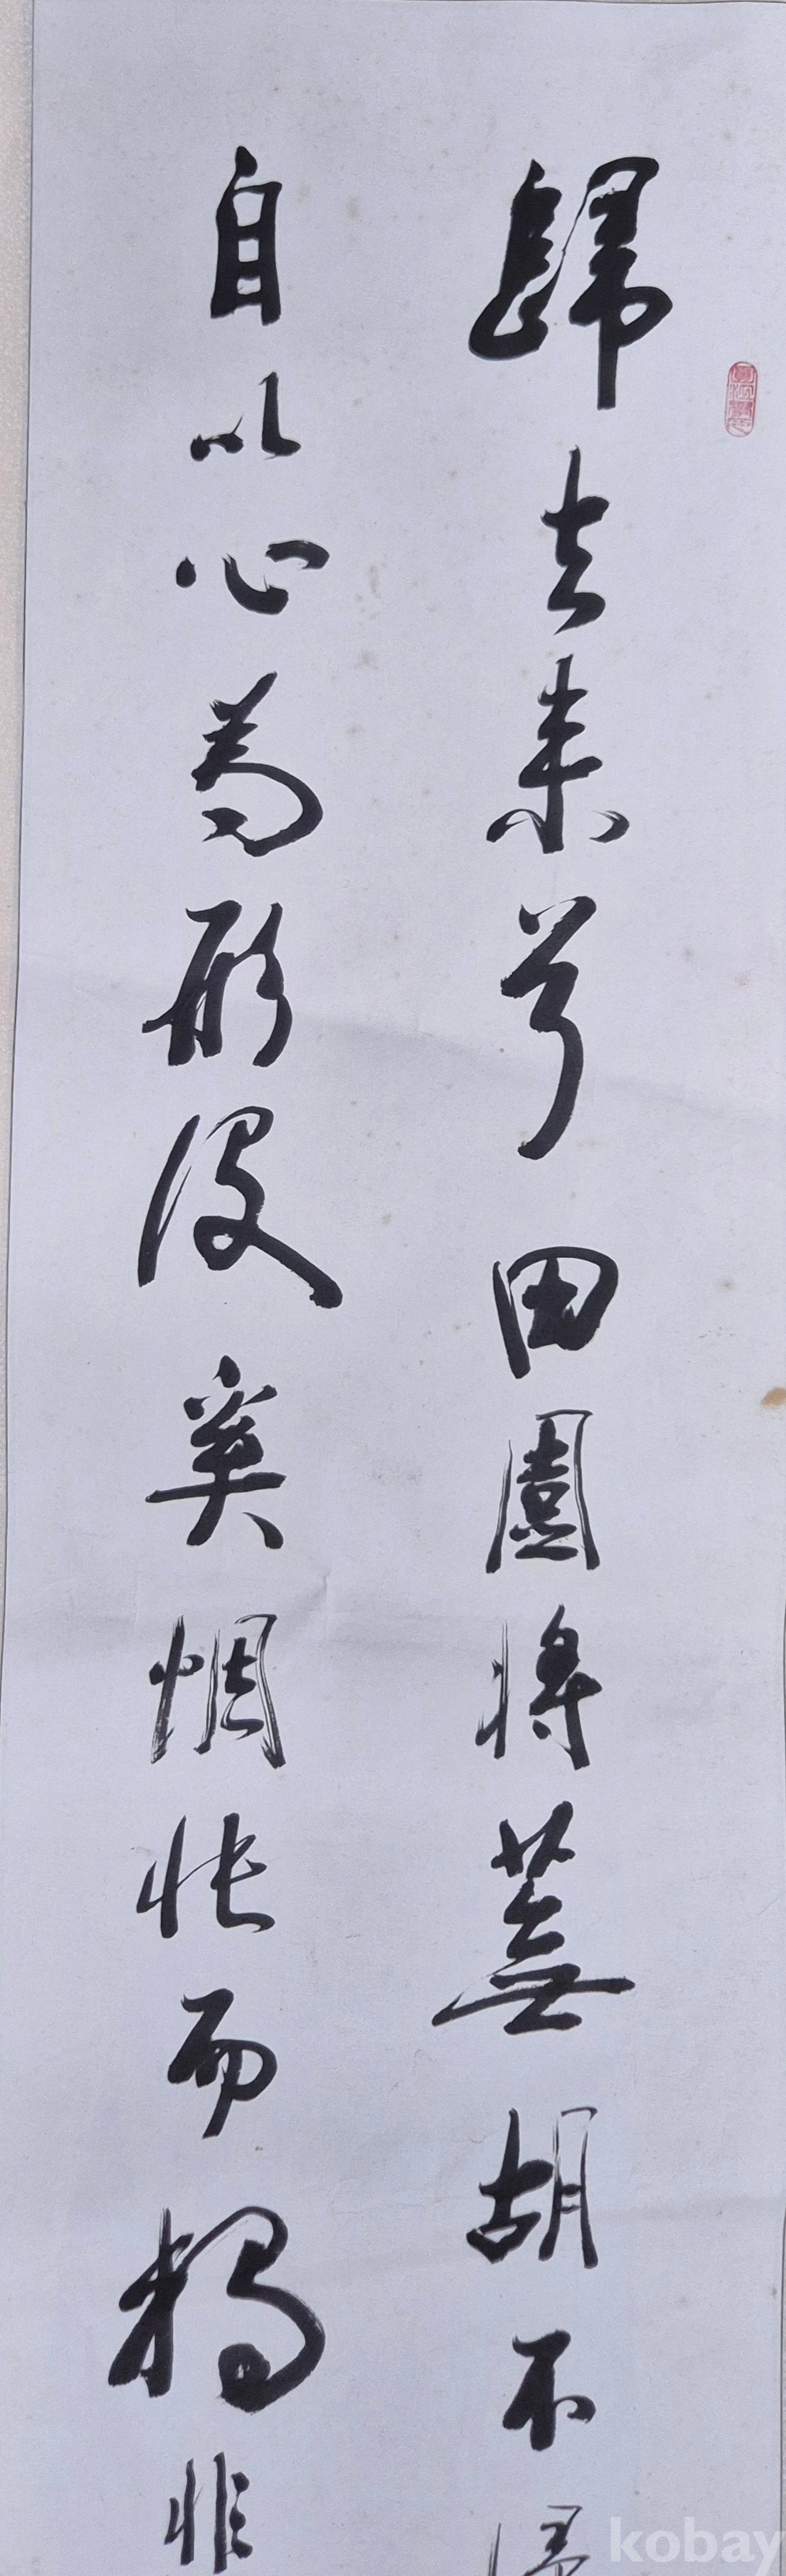 歸去来兮田園将蕪胡不
自以心為形役奚惆悵而獨
kobay